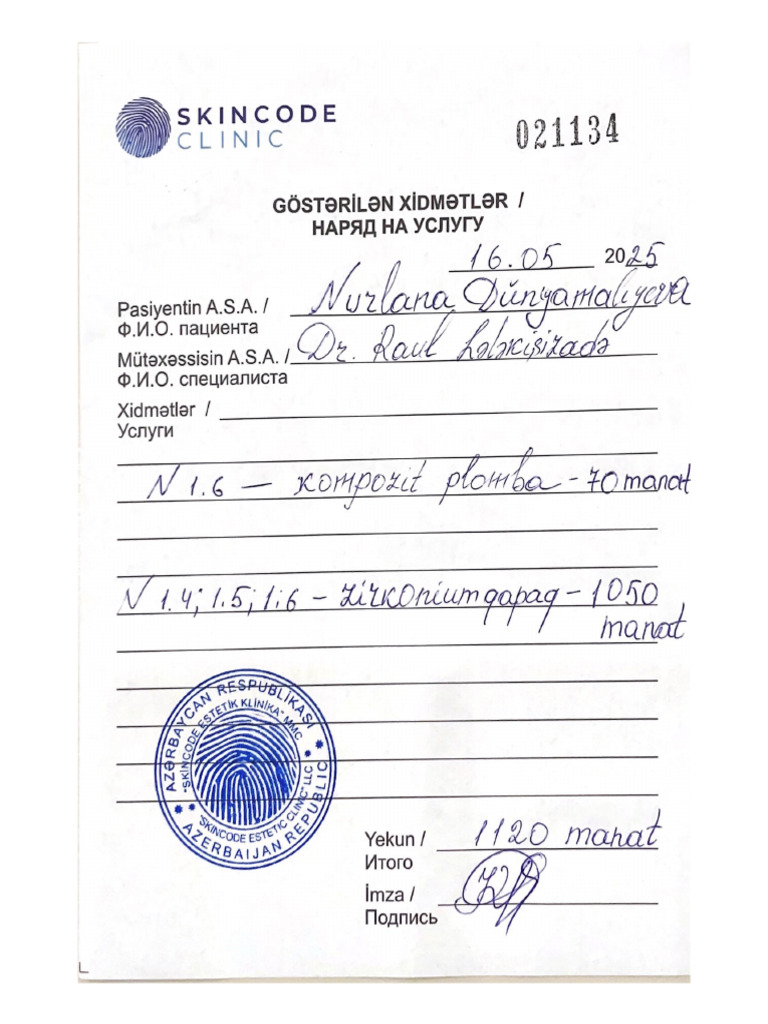 SKINCODE
CLINIC
021134
GÖSTƏRİLƏN XİDMƏTLƏR /
НАРЯД НА УСЛУГУ
16.05 2025
Pasiyentin A.S.A. / Nurlana Dünyamalıyeva
Ф.И.О. пациента
Mütəxəssisin A.S.A. / Dr. Raul Lələkişizadə
Ф.И.О. специалиста
Xidmətlər /
Услуги
N 1.6 – kompozit plomba - 70 manat
N 1.4; 1.5; 1.6 – zirkonium qapaq – 1050
manat
AZƏRBAYCAN RESPUBLİKASI
"SKINCODE ESTETİK KLİNİKA" MMC
"SKINCODE ESTETIC CLINIC" LLC
AZERBAIJAN REPUBLIC
Yekun / 1120 manat
Итого
İmza /
Подпись